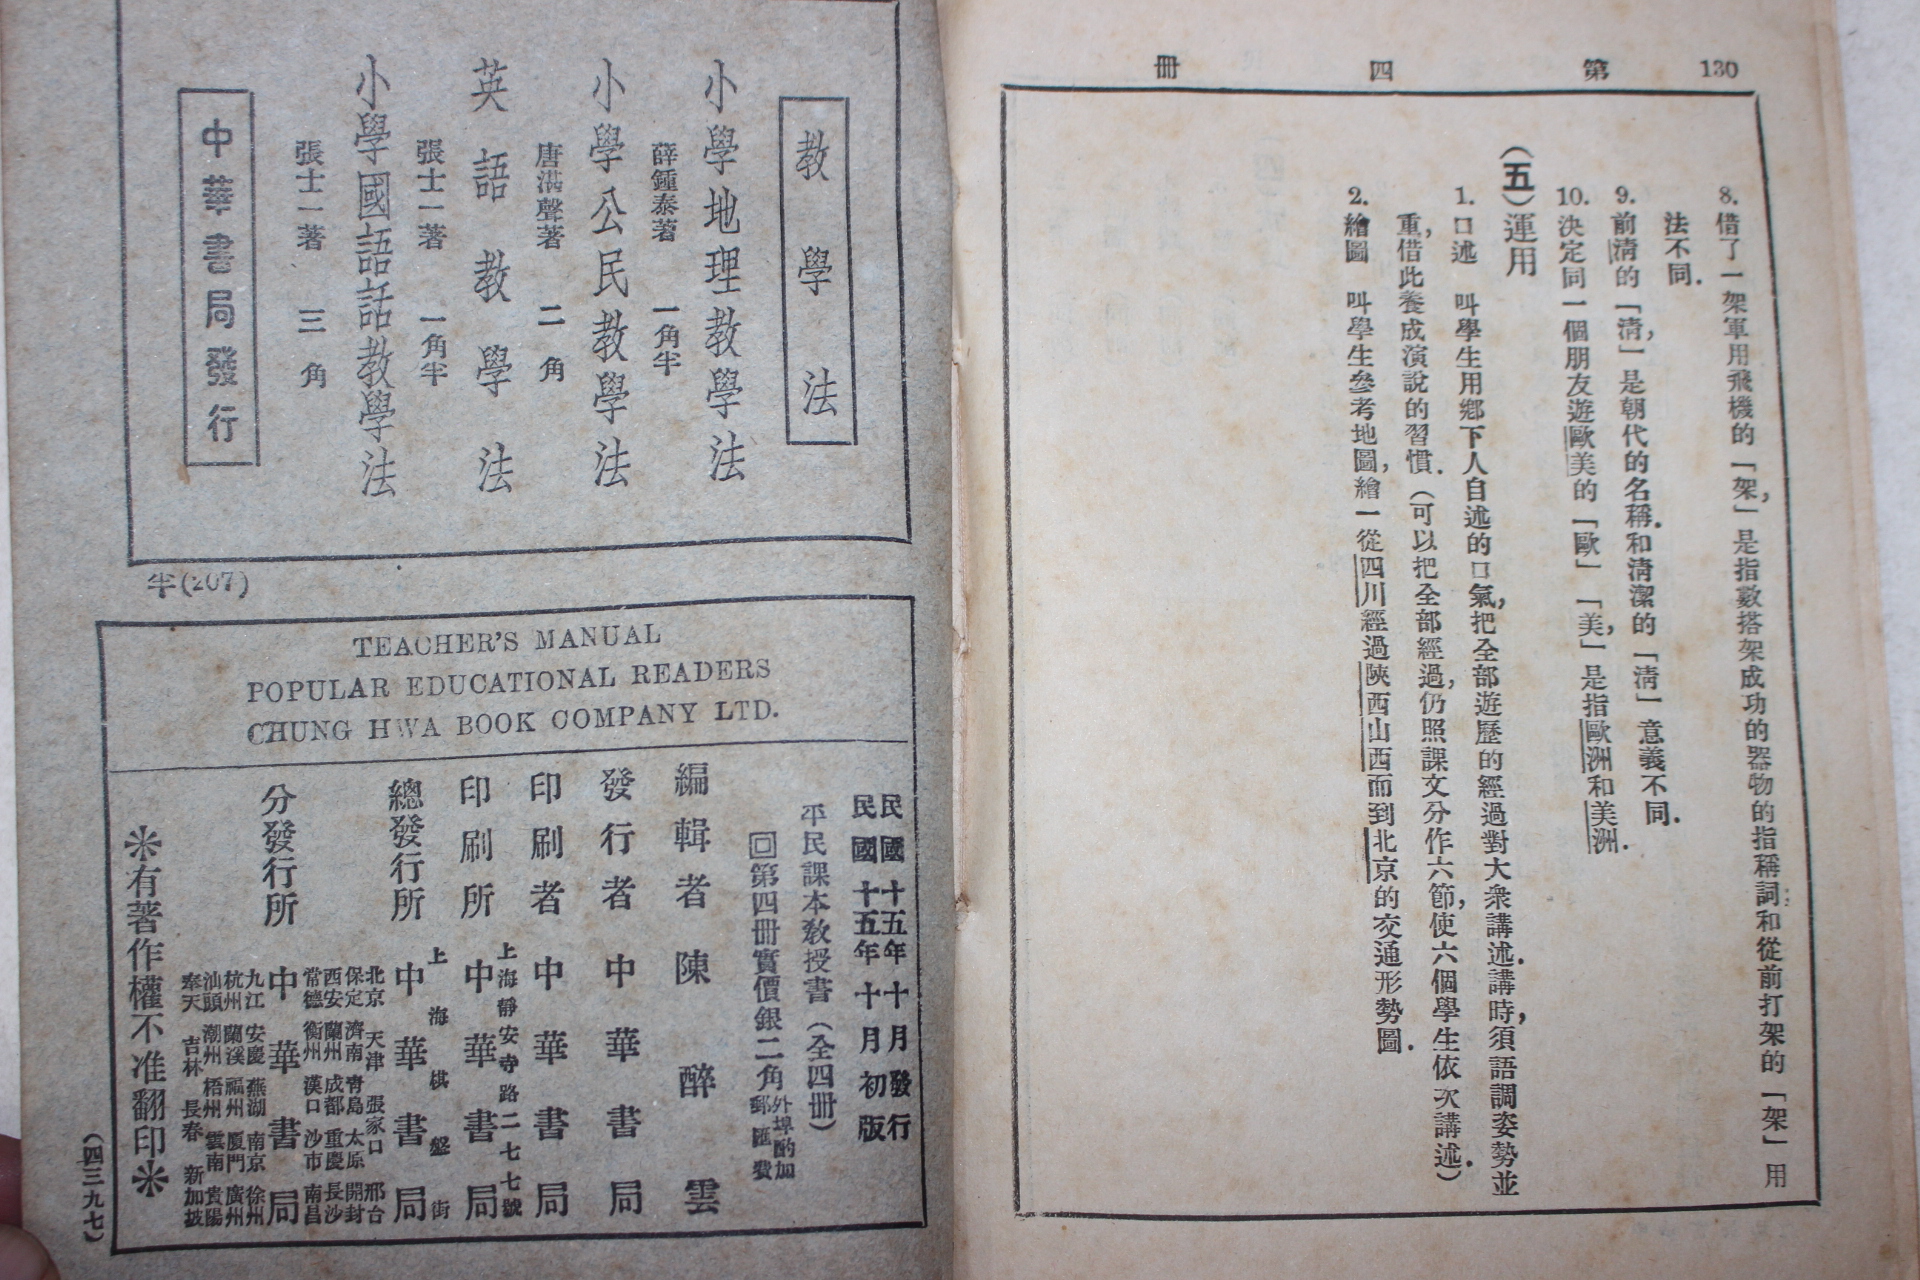 第四冊 130
8. 借了一架軍用飛機的「架」,是指數搭架成功的器物的指稱詞和從前打架的「架」用
法不同.
9. 前清的「清」,是朝代的名稱.和清潔的「清」意義不同.
10. 決定同一個朋友遊歐美的「歐」「美」,是指歐洲和美洲.
(五)運用
1. 口述 叫學生用鄉下人自述的口氣,把全部遊歷的經過對大衆講述.講時,須語調姿勢並
重,借此養成演說的習慣.(可以把全部經過,仍照課文分作六節,使六個學生依次講述.)
2. 繪圖 叫學生參考地圖,繪一從四川經過陝西山西而到北京的交通形勢圖.
教學法
小學地理教學法
薛鍾泰著 一角半
小學公民教學法
唐湛聲著 二角
英語教學法
張士一著 一角半
小學國語話教學法
張士一著 三角
中華書局發行
半(207)
TEACHER'S MANUAL
POPULAR EDUCATIONAL READERS
CHUNG HWA BOOK COMPANY LTD.
民國十五年十月發行
民國十五年十月初版
平民課本教授書(全四冊)
回第四冊實價銀二角
外埠酌加
郵匯費
編輯者 陳醉雲
發行者 中華書局
印刷者 中華書局
上海靜安寺路二七七號
印刷所 中華書局
上海棋盤街
總發行所 中華書局
分發行所 中華書局
北京 天津 張家口 邢台
保定 濟南 青島 太原 開封
西安 蘭州 成都 重慶 長沙
常德 衡州 漢口 沙市 南昌
九江 安慶 蕪湖 南京 徐州
杭州 蘭溪 福州 廈門 廣州
汕頭 潮州 梧州 雲南 貴陽
奉天 吉林 長春 新加坡
※有著作權不准翻印※
(四三九七)